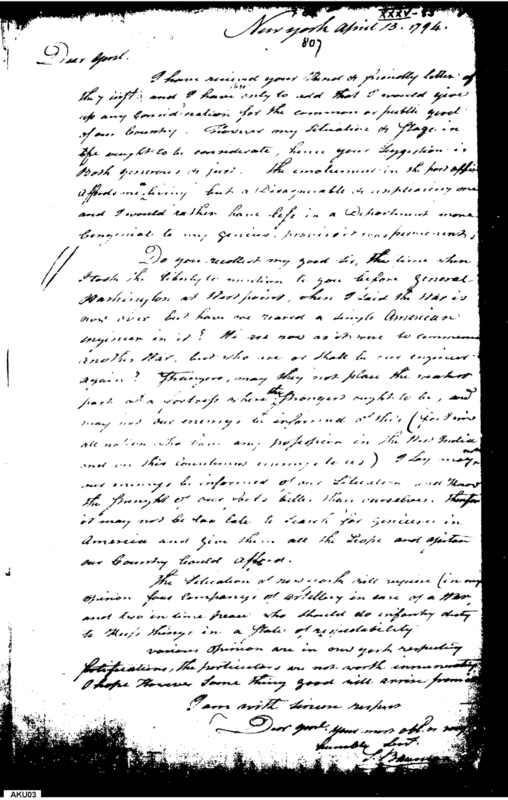 XXXV-83
New york April 13. 1794.
807
Dear Genl.
I have received your kind & friendly letter of
the 7 inst. and I have only to add that I would give
up any Consideration for the common or public good
of our Country. However my Situation & Stage in
life ought to be considerate, hence your Suggestion is
Both generous & just. The emolument in the post office
affords me living but a Disagreeable & unpleasing one
and I would rather have less in a Department more
Congenial to my genius, proviso it was permanent.
Do you recollect my good Sir, the time when
I took the liberty to mention to you before General
Washington at Westpoint, when I said the War is
now over but have we reared a single American
engineer in it? We are now as it were to commence
another War, but who are or shall be our engineers
again? Strangers, may they not place the weakest
part of a fortress where the strongest ought to be, and
may not our enemys be informed of this (for I view
all nation who have any possession in the West Indies
and on this Continent enemys to us) I Say may not
our enemys be informed of our Situation and know
the strenght of our forts better than ourselves. therefore
it may not be too late to Search for geniuses in
America and give them all the Scope and
our Country Could afford.
The Situation of new york will require (in my
opinion four Companys of artillery in case of a War,
and two in time peace who should do infantry duty
to keep things in a State of respectability
various opinion are in new york respecting
fortifications, the particulars are not worth
I hope However Some thing good will arise from
I am with sincere respect
Dear genl. your most obt.
humble Servt.
S. Bauman
AKU03